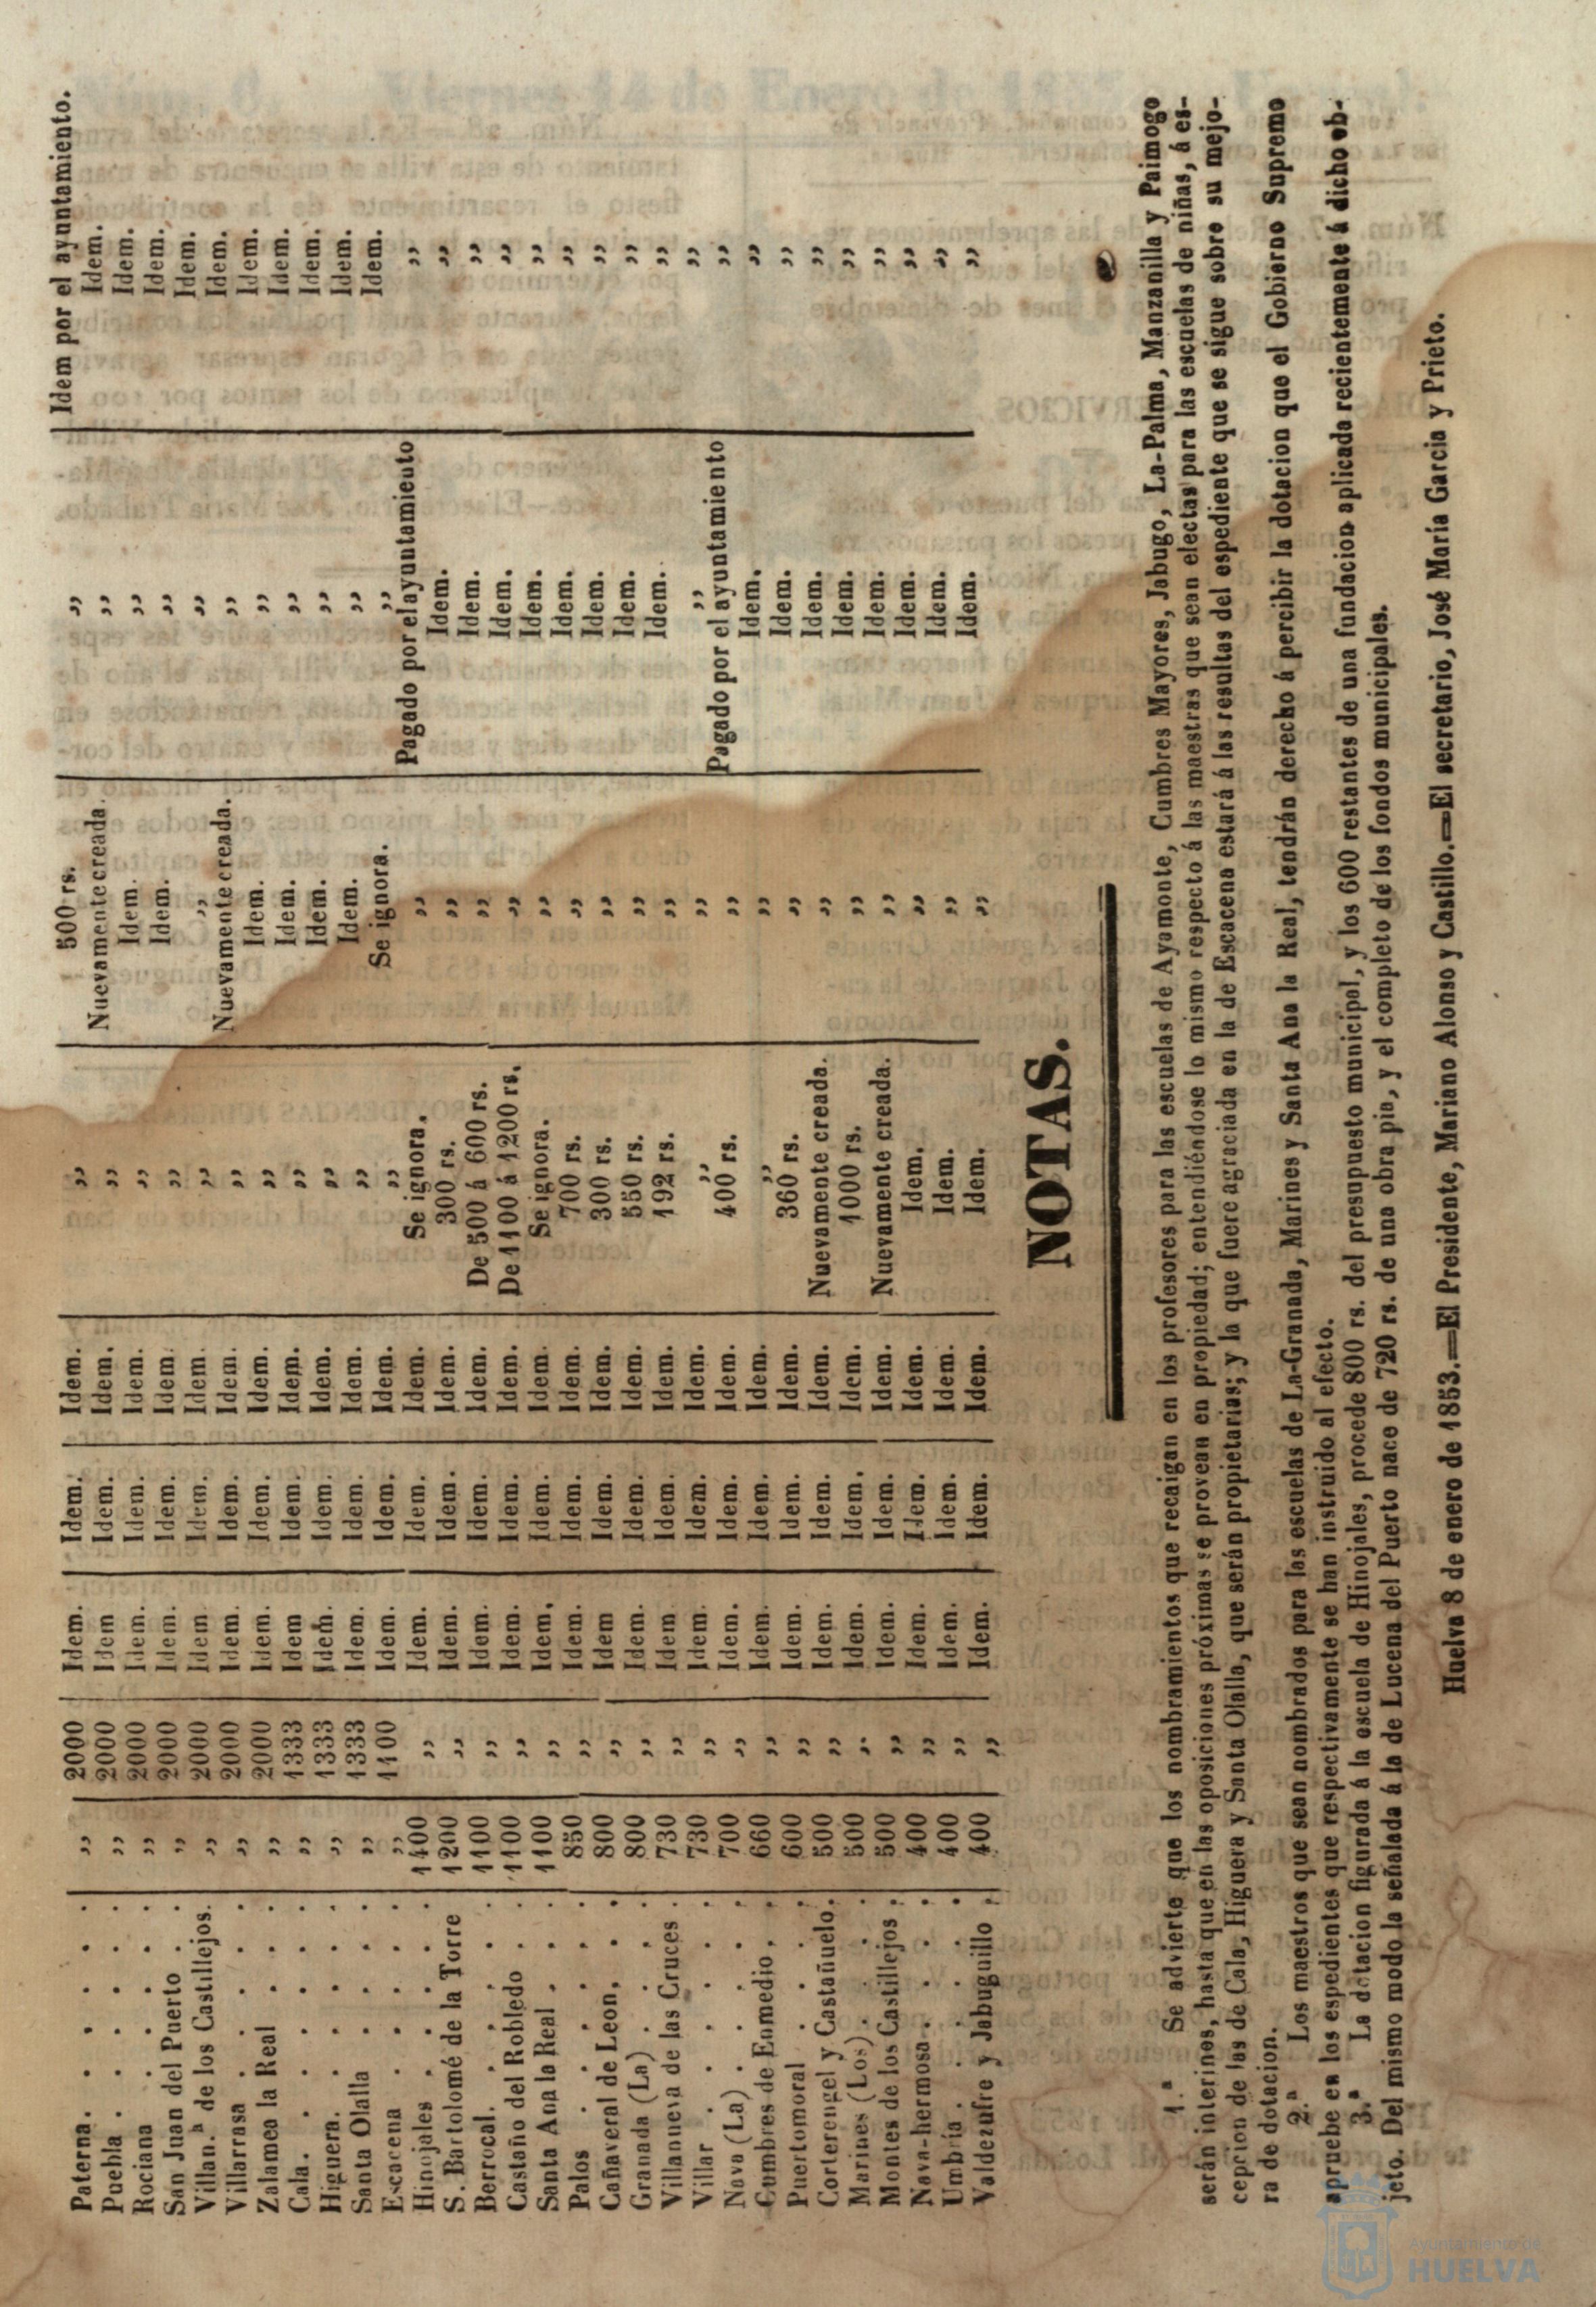 Paterna. . . . . ,, 2000 Idem. Idem. Idem. ,, 500 rs. ,, Idem por el ayuntamiento.
Puebla . . . . . ,, 2000 Idem Idem. Idem. ,, Nuevamente creada. ,, Idem.
Rociana . . . . . ,, 2000 Idem. Idem. Idem. ,, Idem. ,, Idem.
San Juan del Puerto . . ,, 2000 Idem. Idem. Idem ,, Idem. ,, Idem.
Villan.ª de los Castillejos. ,, 2000 Idem Idem. Idem. ,, ,, ,, Idem.
Villarrasa . . . . ,, 2000 Idem. Idem. Idem. ,, Nuevamente creada. ,, Idem.
Zalamea la Real . . . ,, 2000 Idem. Idem. Idem. ,, Idem. ,, Idem.
Cala . . . . . ,, 1333 Idem Idem. Idem. ,, Idem. ,, Idem.
Higuera. . . . . ,, 1333 Idem. Idem. Idem. ,, Idem. ,, Idem.
Santa Olalla . . . . ,, 1333 Idem. Idem. Idem. ,, Idem. ,, Idem.
Escacena . . . . ,, 1100 Idem. Idem. Idem. ,, Se ignora. ,, Idem.
Hinojales . . . . 1400 ,, Idem. Idem. Idem. Se ignora. ,, Pagado por el ayuntamiento ,,
S. Bartolomé de la Torre 1200 ,, Idem. Idem. Idem. 300 rs. ,, Idem. ,,
Berrocal. . . . . 1100 ,, Idem. Idem. Idem. De 500 á 600 rs. ,, Idem. ,,
Castaño del Robledo . . 1100 ,, Idem. Idem. Idem. De 1100 á 1200 rs. ,, Idem. ,,
Santa Ana la Real . . . 1100 ,, Idem. Idem. Idem. Se ignora. ,, Idem. ,,
Palos . . . . . 850 ,, Idem. Idem. Idem. 700 rs. ,, Idem. ,,
Cañaveral de Leon. . . 800 ,, Idem Idem. Idem. 300 rs. ,, Idem. ,,
Granada (La) . . . . 800 ,, Idem. Idem. Idem. 550 rs. ,, Idem. ,,
Villanueva de las Cruces . 730 ,, Idem. Idem. Idem. 192 rs. ,, Idem. ,,
Villar . . . . . 730 ,, Idem Idem. Idem. ,, ,, ,, ,,
Nava (La) . . . . 700 ,, Idem. Idem. Idem. 400 rs. ,, Pagado por el ayuntamiento ,,
Cumbres de Enmedio . . 660 ,, Idem. Idem. Idem. ,, ,, Idem. ,,
Puertomoral . . . . 600 ,, Idem. Idem. Idem. 360 rs. ,, Idem. ,,
Corterengel y Castañuelo. 500 ,, Idem. Idem. Idem. Nuevamente creada. ,, Idem. ,,
Marines (Los) . . . . 500 ,, Idem. Idem. Idem. 1000 rs. ,, Idem. ,,
Montes de los Castillejos . 500 ,, Idem. Idem. Idem. Nuevamente creada. ,, Idem. ,,
Nava-hermosa . . . . 400 ,, Idem. Idem. Idem. Idem. ,, Idem. ,,
Umbria . . . . . 400 ,, Idem. Idem. Idem. Idem. ,, Idem. ,,
Valdezufre y Jabuguillo . 400 ,, Idem. Idem. Idem. Idem. ,, Idem. ,,
NOTAS.
1.ª Se advierte que los nombramientos que recaigan en los profesores para las escuelas de Ayamonte, Cumbres Mayores, Jabugo, La-Palma, Manzanilla y Paimogo
serán interinos, hasta que en las oposiciones próximas se provean en propiedad; entendiéndose lo mismo respecto á las maestras que sean electas para las escuelas de niñas, á es-
cepcion de las de Cala, Higuera y Santa Olalla, que serán propietarias; y la que fuere agraciada en la de Escacena estará á las resultas del espediente que se sigue sobre su mejo-
ra de dotacion.
2.ª Los maestros que sean nombrados para las escuelas de La-Granada, Marines y Santa Ana la Real, tendrán derecho á percibir la dotacion que el Gobierno Supremo
apruebe en los espedientes que respectivamente se han instruido al efecto.
3.ª La dotacion figurada á la escuela de Hinojales, procede 800 rs. del presupuesto municipal, y los 600 restantes de una fundacion aplicada recientemente á dicho ob-
jeto. Del mismo modo la señalada á la de Lucena del Puerto nace de 720 rs. de una obra pia, y el completo de los fondos municipales.
Huelva 8 de enero de 1853.=El Presidente, Mariano Alonso y Castillo.=El secretario, José Maria Garcia y Prieto.
Ayuntamiento de
HUELVA